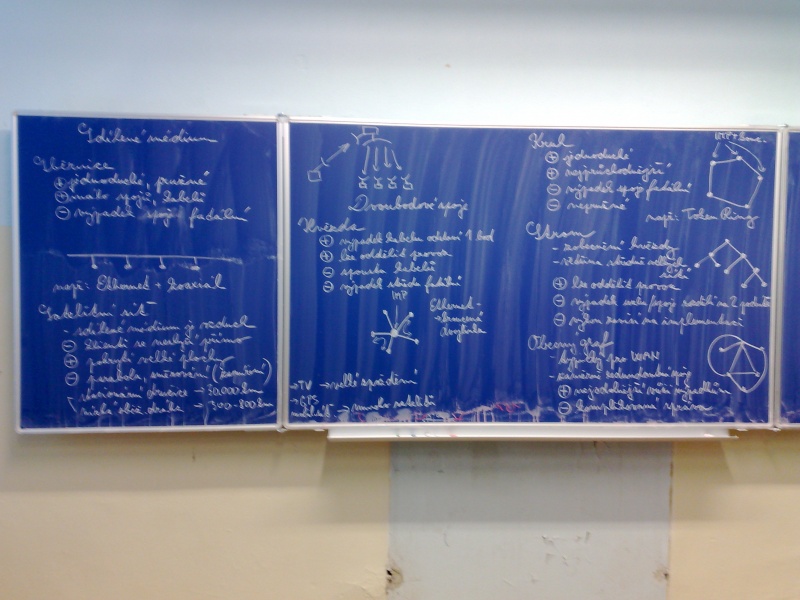 Sdílené médium
Sběrnice
⊕ jednoduché, pružné
⊕ málo spojů, kabelů
⊖ výpadek spoje fatální
např: Ethernet + koaxiál
Satelitní síť
- sdílené médium je vzduch
⊖ klienti se neslyší přímo
⊕ pokrytí velké plochy
⊖ parabola, směrování (zaměření)
stacionární družice → 30.000 km
nízká oběž. dráha → 300-800 km
Dvoubodové spoje
Hvězda
⊕ výpadek kabelu odstaví 1 bod
⊕ lze oddělit provoz
⊖ spousta kabelů
⊖ výpadek středu fatální
IMP
Ethernet -
kroucená
dvojlinka
→ TV → velké zpoždění
→ GPS
→ mnoho satelitů
Kruh
⊕ jednoduché
⊕
⊖ výpadek spoje fatální
⊖ nepružné
např: Token Ring
IMP +
Strom
- zobecnění hvězdy
- většina středů
⊕ lze oddělit provoz
⊖ výpadek uzlu/spoje rozdělí na 2 podsítě
⊖ výkon závisí na implementaci
Obecný graf
- typický pro WAN
- zavádíme redundantní spoje
⊕ nejodolnější vůči výpadkům
⊖ komplikovaná správa